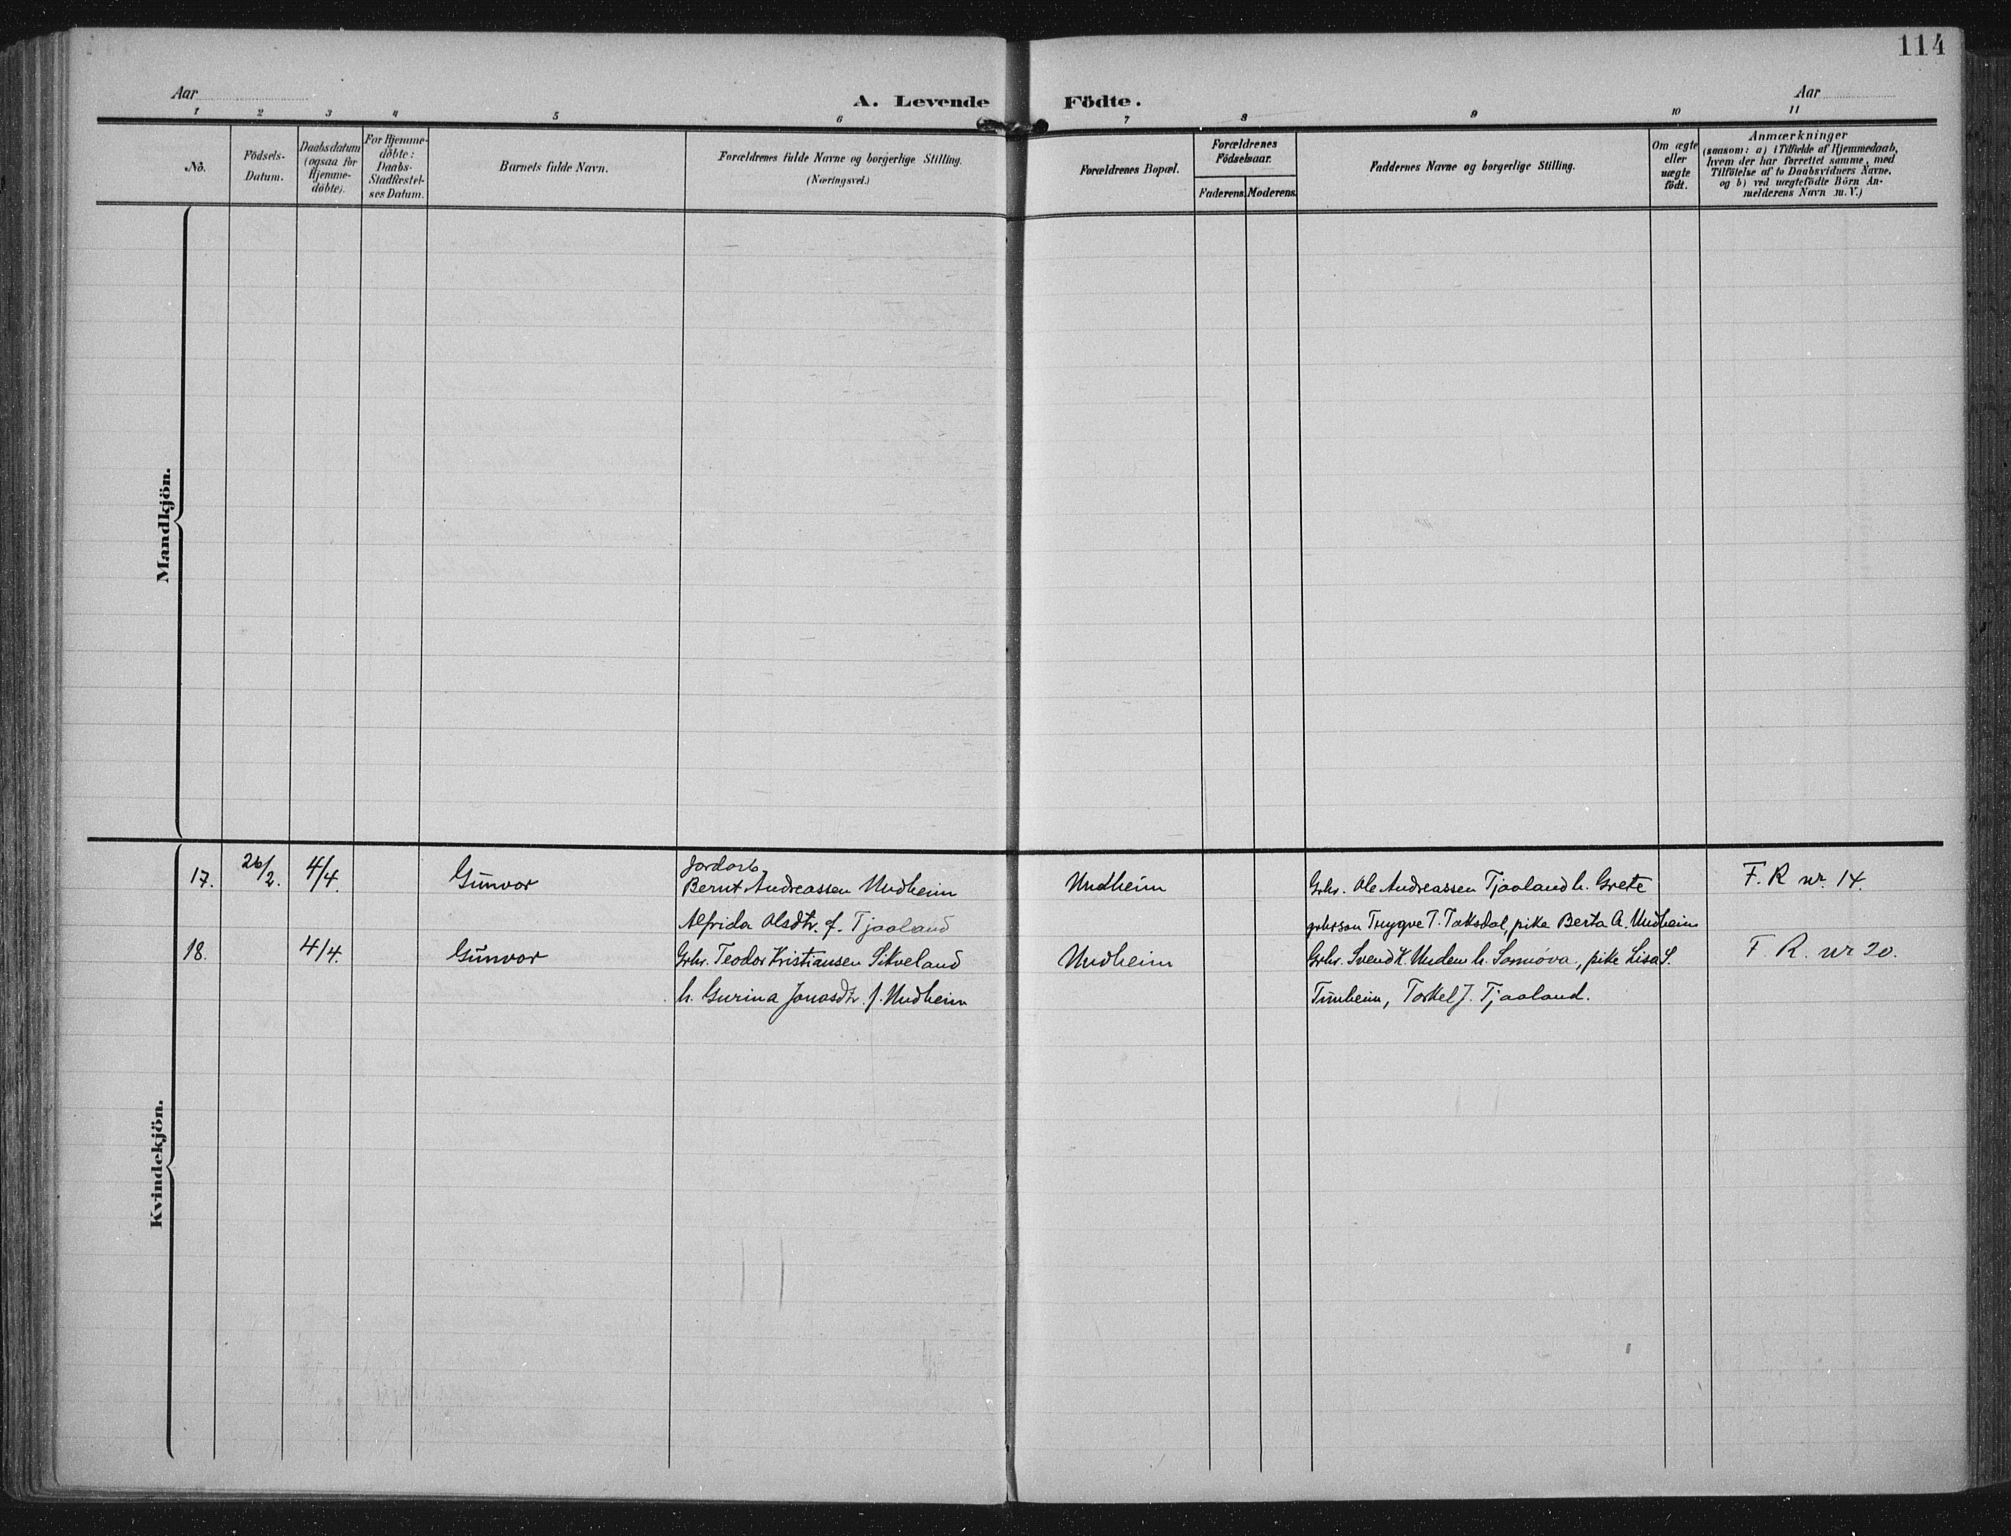 114
Aar
A. Levende Födte.
Aar
1 2 3 4 5 6 7 8 9 10 11
No.
Födsels-
Datum.
Daabsdatum
(ogsaa for
Hjemme-
döbte).
For Hjemme-
döbte:
Daabs-
Stadfæstel-
ses Datum.
Barnets fulde Navn.
Forældrenes fulde Navne og borgerlige Stilling.
(Næringsvei.)
Forældrenes Bopæl.
Forældrenes
Födselsaar.
Faderens. Moderens.
Faddernes Navne og borgerlige Stilling.
Om ægte
eller
uægte
födt.
Anmærkninger
(saasom: a) i Tilfælde af Hjemmedaab,
hvem der har forrettet samme, med
Tilföielse af to Daabsvidners Navne,
og b) ved uægtefödte Börn An-
melderens Navn m. V.)
Mandkjön.
Kvindekjön.
17. 26/2. 4/4. Gunvor Jordarb.
Bernt Andreassen Undheim Undheim Gbr. Ole Andreassen Tjaaland h. Grete F. R nr. 14.
Alfrida Olsdtr. f. Tjaaland gbrsson Trygve T. Taksdal, pike Berta A. Undheim
18. 4/4. Gunvor Gbr. Teodor Kristiansen Sikveland Undheim Gbr. Svend K. Undem h. , pike Lisa S. F R. nr 20.
h. Gurina Jonasdtr. f. Undheim Tunheim, Torkel J. Tjaaland.